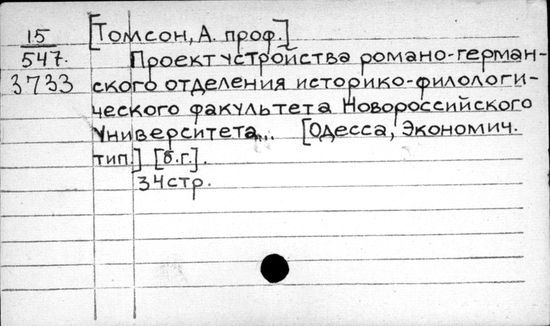 15 [Томсон, А. проф.]
547. Проект устройства романо-герман-
3733 ского отделения историко-филологи-
ческого факультета Новороссийского
Университета... [Одесса, Экономич.
тип.] [б.г.].
34 стр.